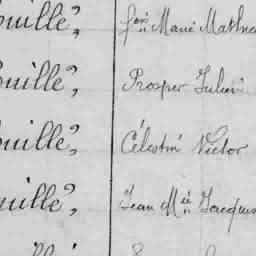 ouille?, fçois Marie Mathu
ouille?, Prosper Julien
ouille?, Célestin Victor
ouille?, Jean Mie Jacques